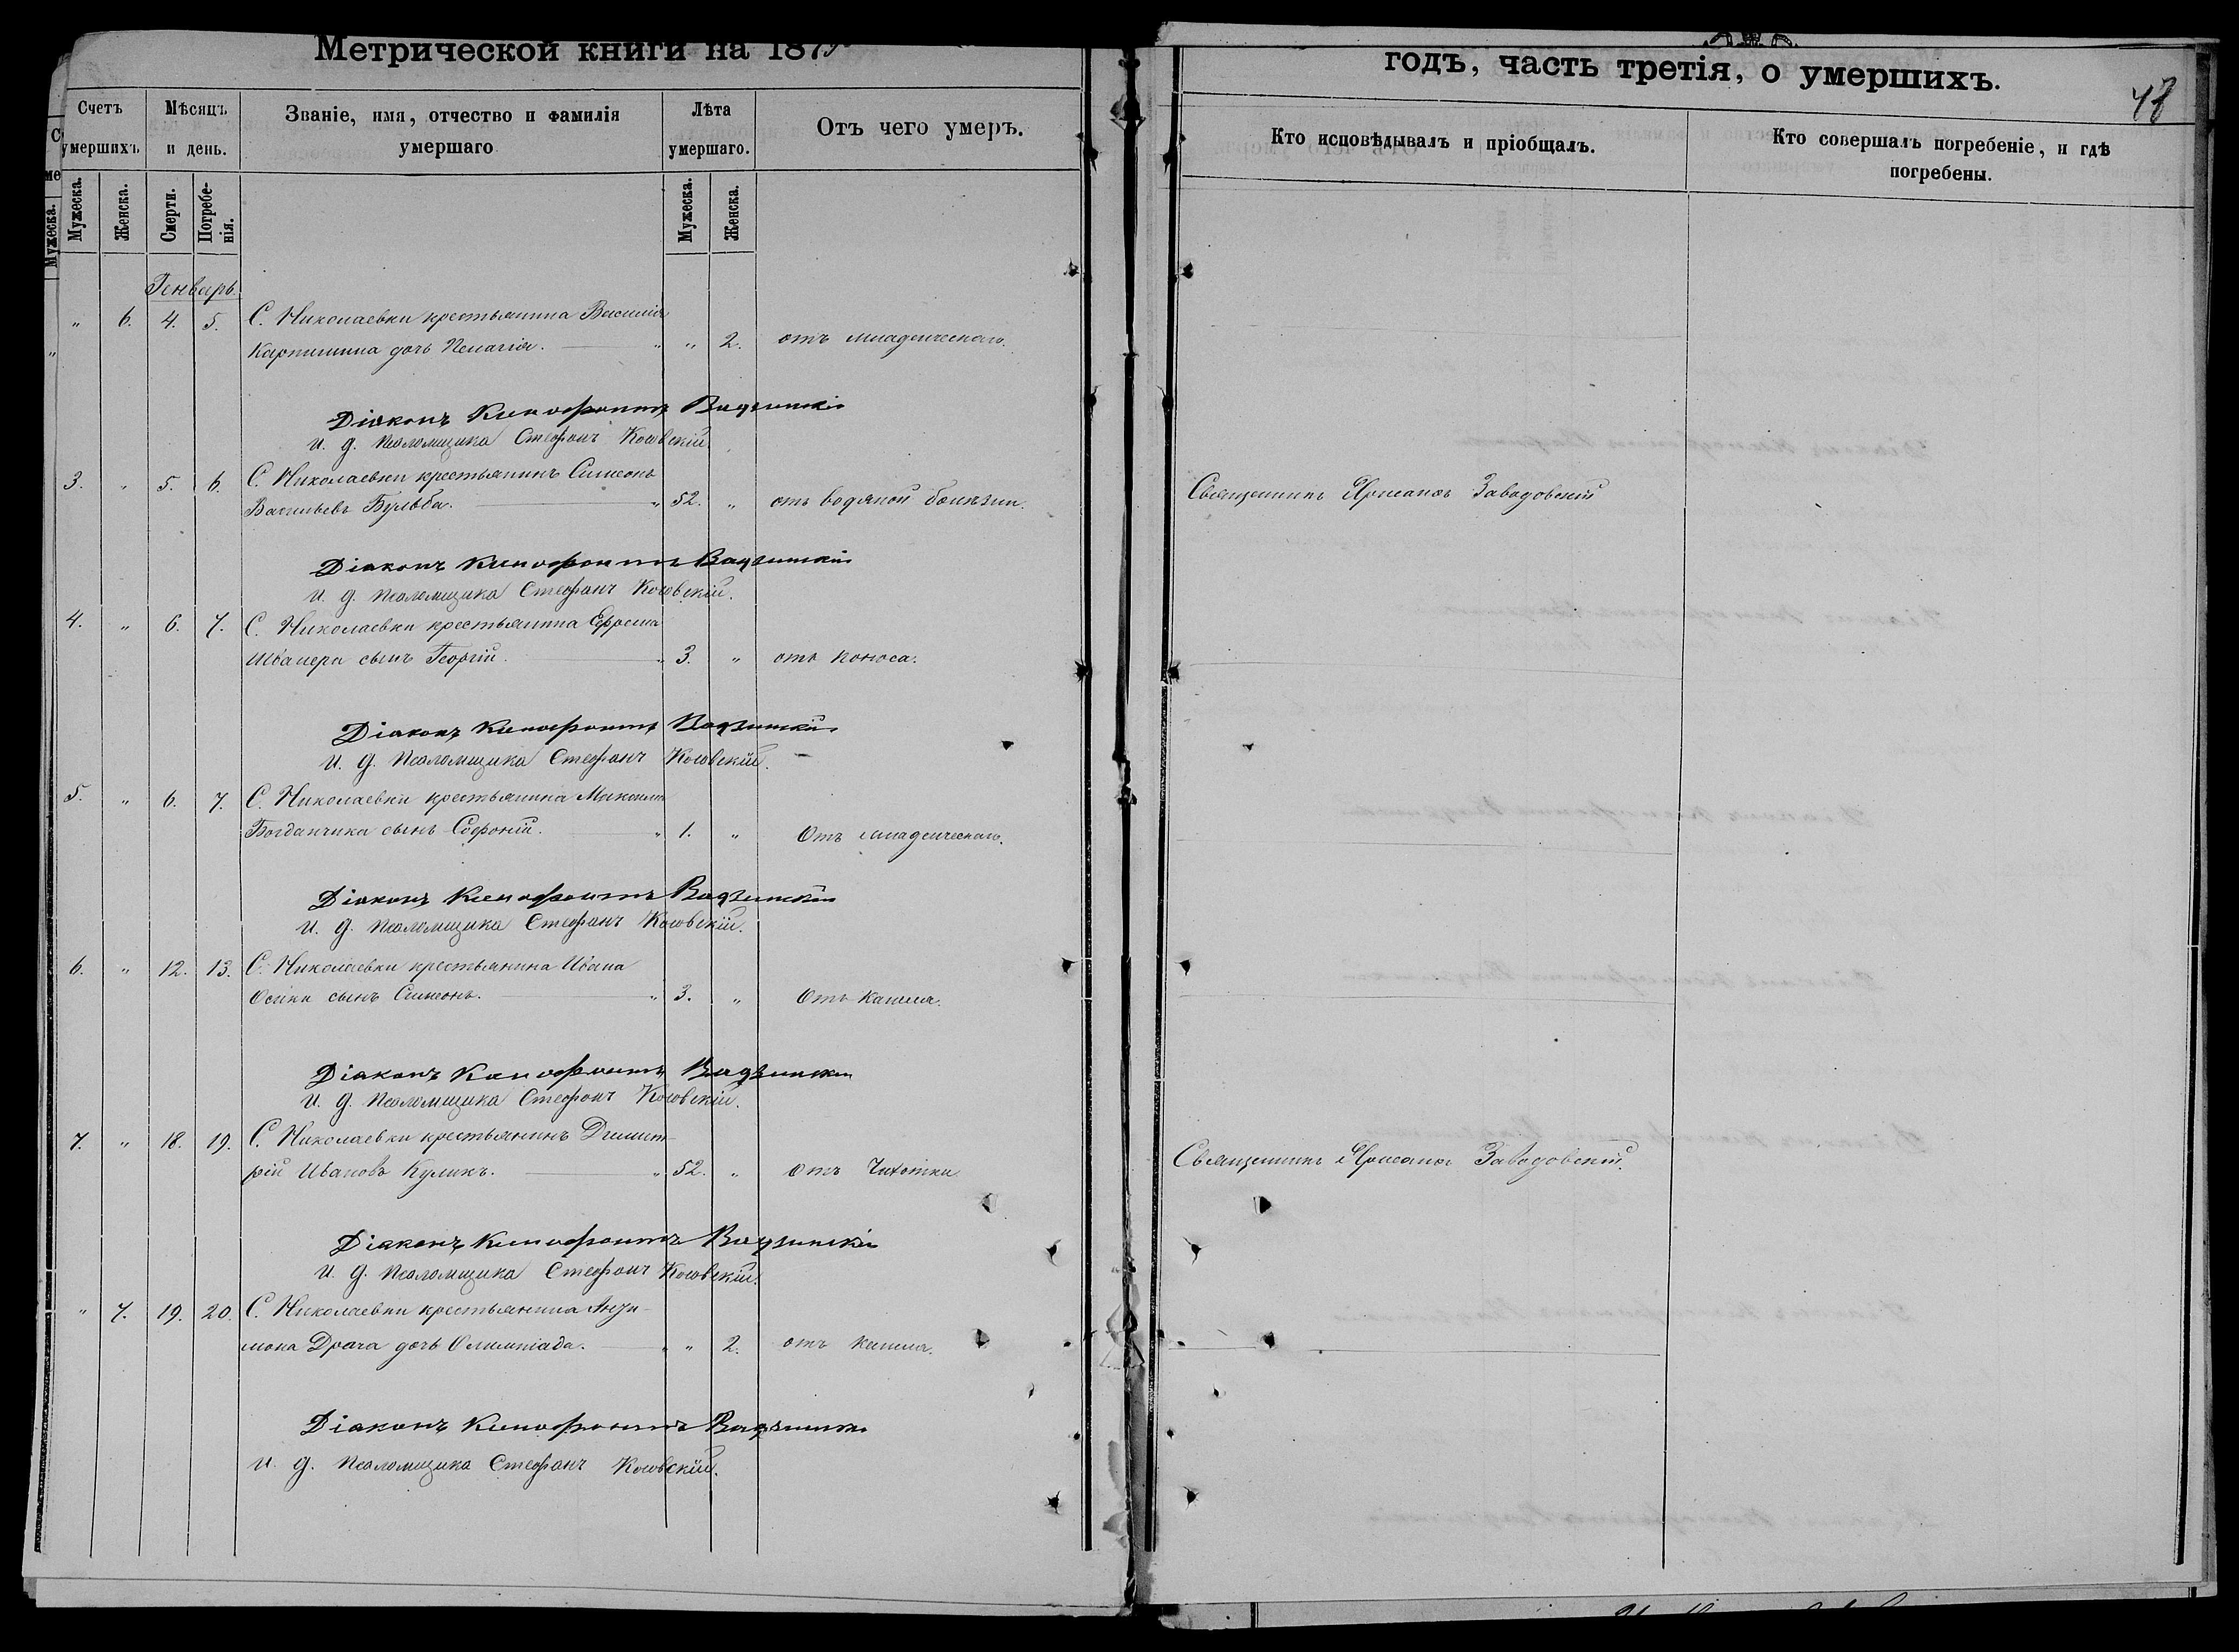 Метрической книги на 187
годъ, часть третія, о умершихъ.
Счетъ умершихъ
Мѣсяцъ и день.
Званіе, имя, отчество и фамилія умершаго
Лѣта умершаго.
Отъ чего умеръ.
Кто исповѣдывалъ и пріобщалъ.
Кто совершалъ погребеніе, и гдѣ погребены.
Мужеска.
Женска.
Смерти.
Погребе-
нія.
Мужеска.
Женска.
Генварь.
" 6. 4. 5. С. Николаевки крестьянина Василія
дочь Пелагія. " " 2. отъ младенческаго.
Діаконъ Ксенофонтъ
И. д. псаломщика Стефанъ
3. " 5. 6. С. Николаевки крестьянинъ Симеонъ
Васильевъ Бульба. " 52. " отъ водяной болѣзни. Священникъ Заводовскій
Діаконъ Ксенофонтъ
И. д. псаломщика Стефанъ
4. " 6. 7. С. Николаевки крестьянина Ефрема
сынъ Георгій. " 3. " отъ поноса.
Діаконъ Ксенофонтъ
И. д. псаломщика Стефанъ
5. " 6. 7. С. Николаевки крестьянина Михаила
Богданчика сынъ Софроній. " 1. " Отъ младенческаго.
Діаконъ Ксенофонтъ
И. д. псаломщика Стефанъ
6. " 12. 13. С. Николаевки крестьянина Ивана
Осики сынъ Симеонъ. " 3. " Отъ кашля.
Діаконъ Ксенофонтъ
И. д. псаломщика Стефанъ
7. " 18. 19. С. Николаевки крестьянинъ Димит-
рій Ивановъ Куликъ. " 52. " Отъ Чахотки Священникъ Заводовскій.
Діаконъ Ксенофонтъ
И. д. псаломщика Стефанъ
" 7. 19. 20. С. Николаевки крестьянина
мона Драча дочь Олимпіада. " " 2. отъ кашля.
Діаконъ Ксенофонтъ
И. д. псаломщика Стефанъ